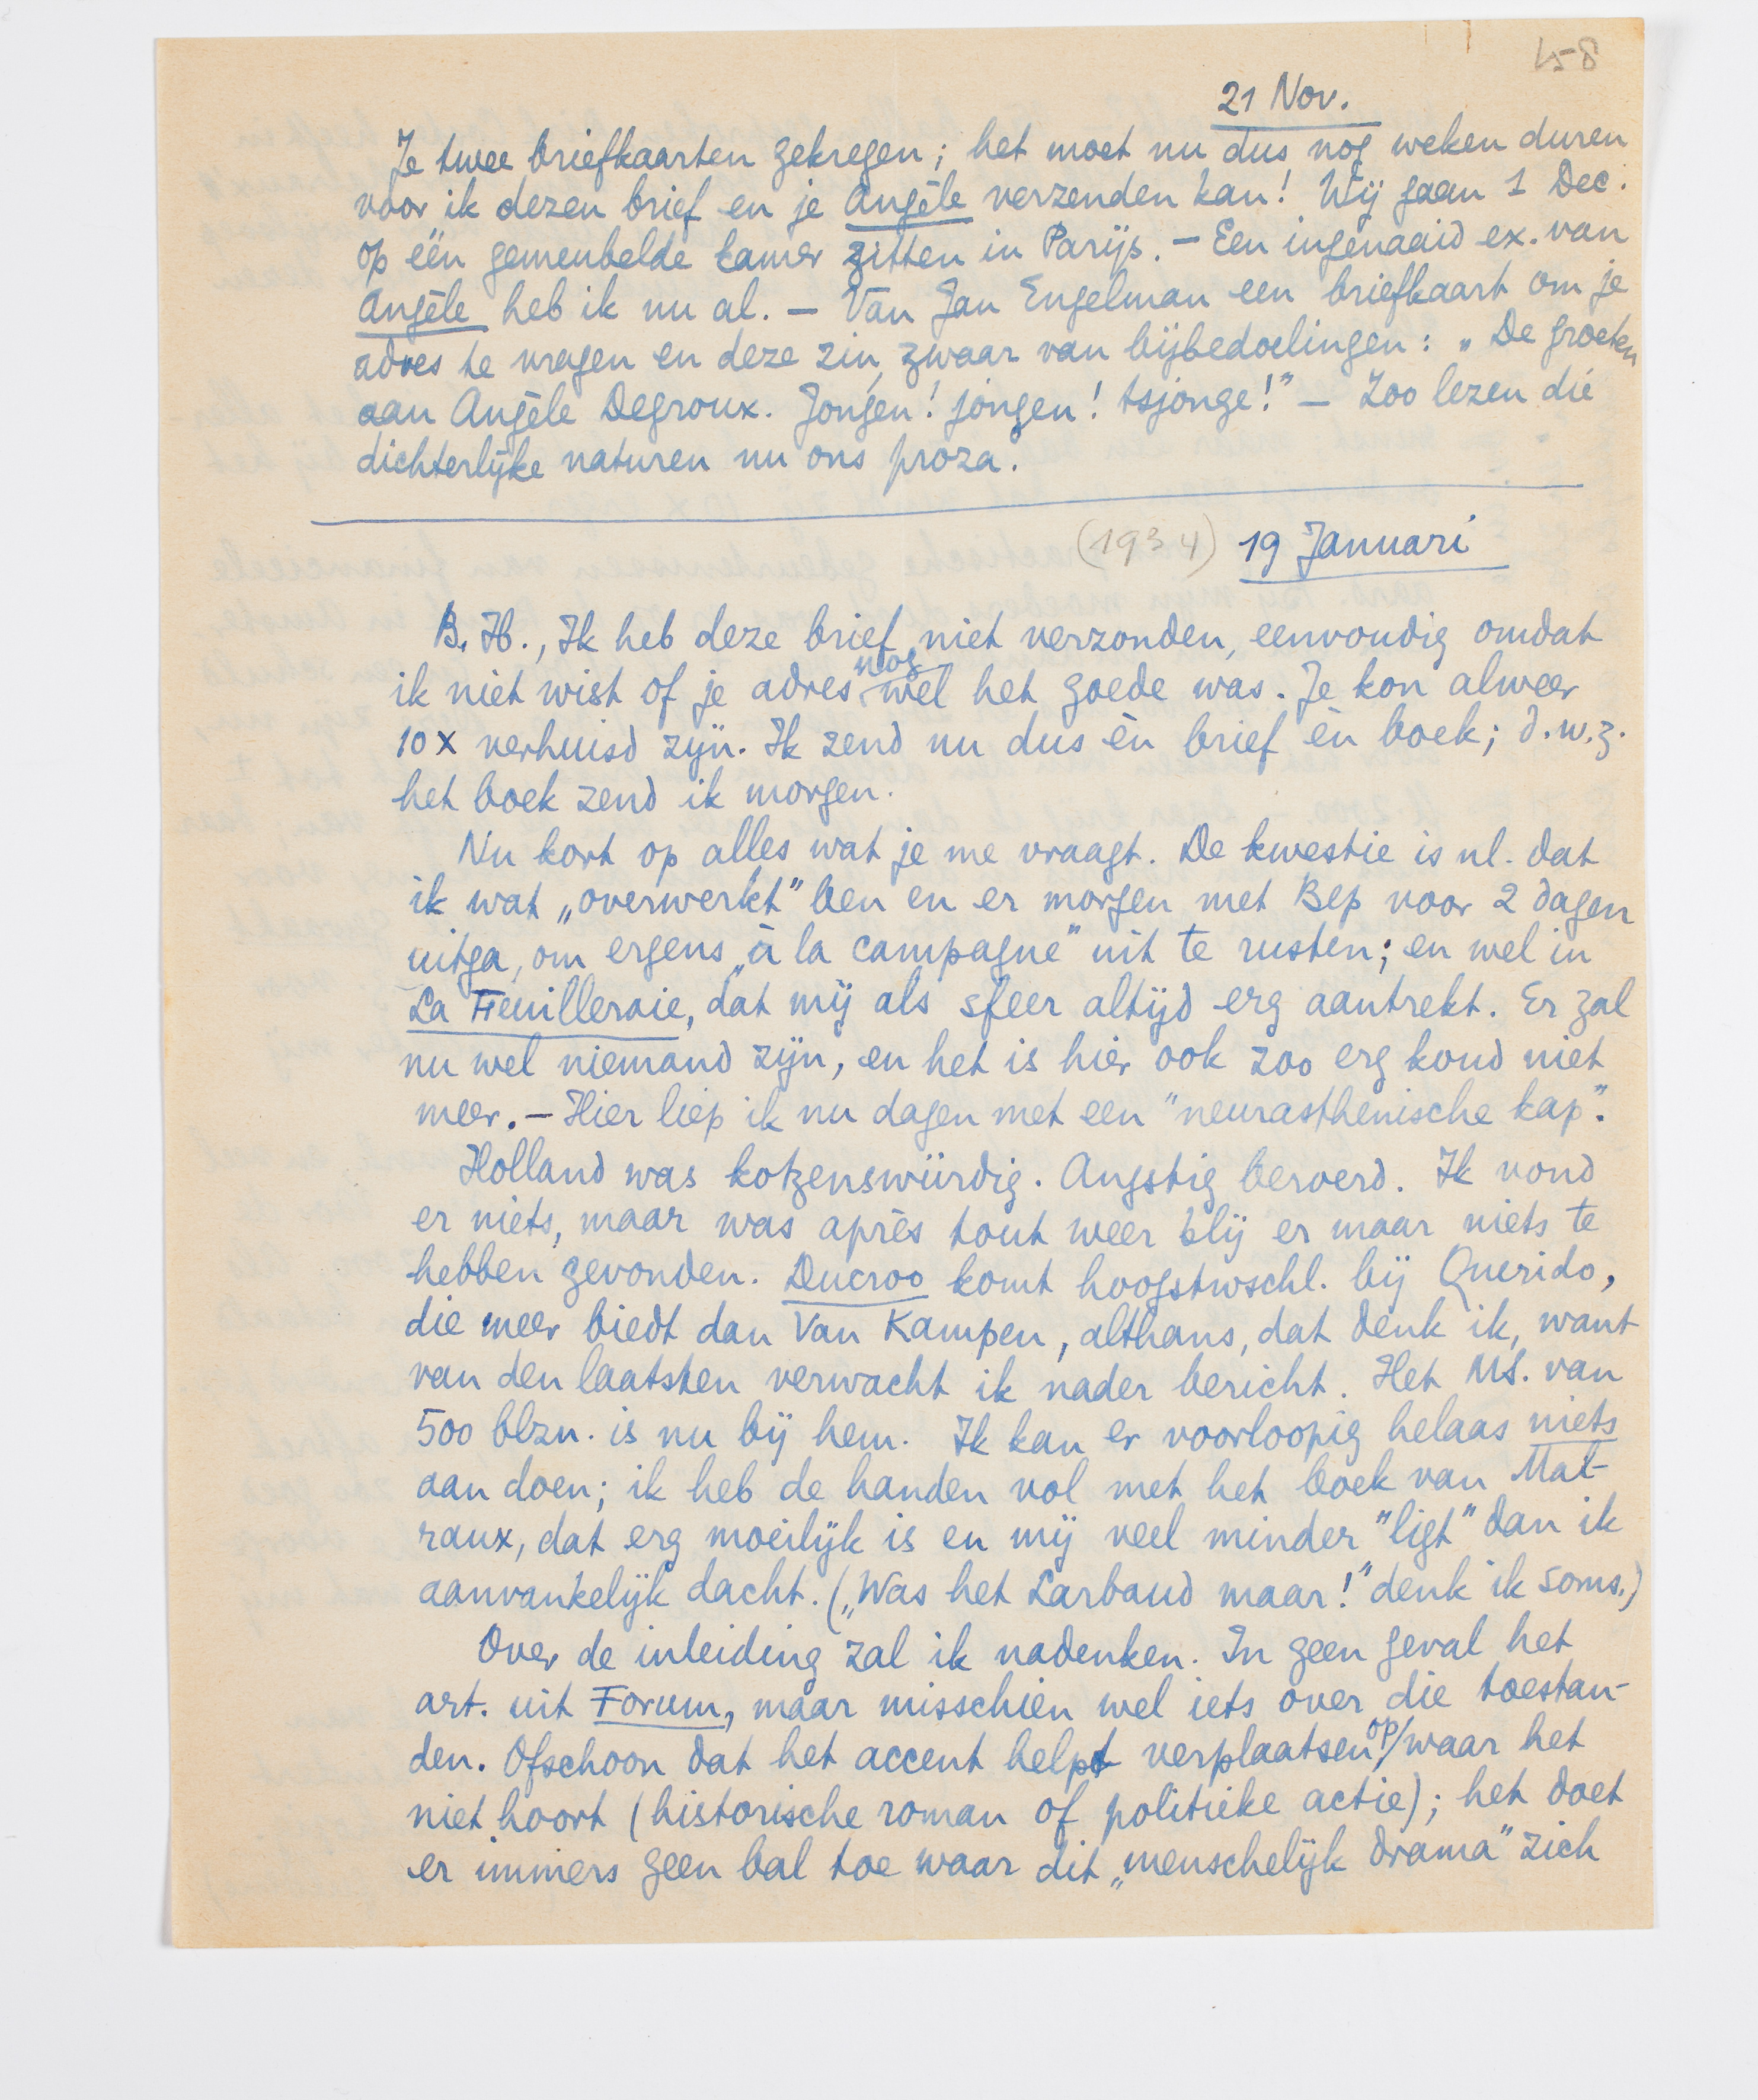 158
21 Nov.
Je twee briefkaarten gekregen; het moet nu dus nog weken duren
voor ik dezen brief en je Angèle verzenden kan! Wij gaan 1 Dec.
op één gemeubelde kamer zitten in Parijs. — Een ingenaaid ex. van
Angèle heb ik nu al. — Van Jan Engelman een briefkaart om je
adres te vragen en deze zin, zwaar van bijbedoelingen: „De groeten
aan Angèle Degroux. Jongen! jongen! tsjonge!” — Zoo lezen die
dichterlijke naturen nu ons proza.
(1934) 19 Januari
B. H., Ik heb deze brief niet verzonden, eenvoudig omdat
ik niet wist of je adres nog wel het goede was. Je kon alweer
10 x verhuisd zijn. Ik zend nu dus èn brief èn boek; d.w.z.
het boek zend ik morgen.
Nu kort op alles wat je me vraagt. De kwestie is nl. dat
ik wat „overwerkt” ben en er morgen met Bep voor 2 dagen
uitga, om ergens „à la campagne” uit te rusten; en wel in
La Feuilleraie, dat mij als sfeer altijd erg aantrekt. Er zal
nu wel niemand zijn, en het is hier ook zoo erg koud niet
meer. — Hier liep ik nu dagen met een "neurasthenische kap".
Holland was kotzenswürdig. Angstig beroerd. Ik vond
er niets, maar was après tout weer blij er maar niets te
hebben gevonden. Ducroo komt hoogstwschl. bij Querido,
die meer biedt dan Van Kampen, althans, dat denk ik, want
van den laatsten verwacht ik nader bericht. Het MS. van
500 blzn. is nu bij hem. Ik kan er voorloopig helaas niets
aan doen; ik heb de handen vol met het boek van Mal-
raux, dat erg moeilijk is en mij veel minder "ligt" dan ik
aanvankelijk dacht. („Was het Larbaud maar!” denk ik soms.)
Over de inleiding zal ik nadenken. In geen geval het
art. uit Forum, maar misschien wel iets over die toestan-
den. Ofschoon dat het accent helpt verplaatsen op/waar het
niet hoort (historische roman of politieke actie); het doet
er immers geen bal toe waar dit „menschelijk drama” zich